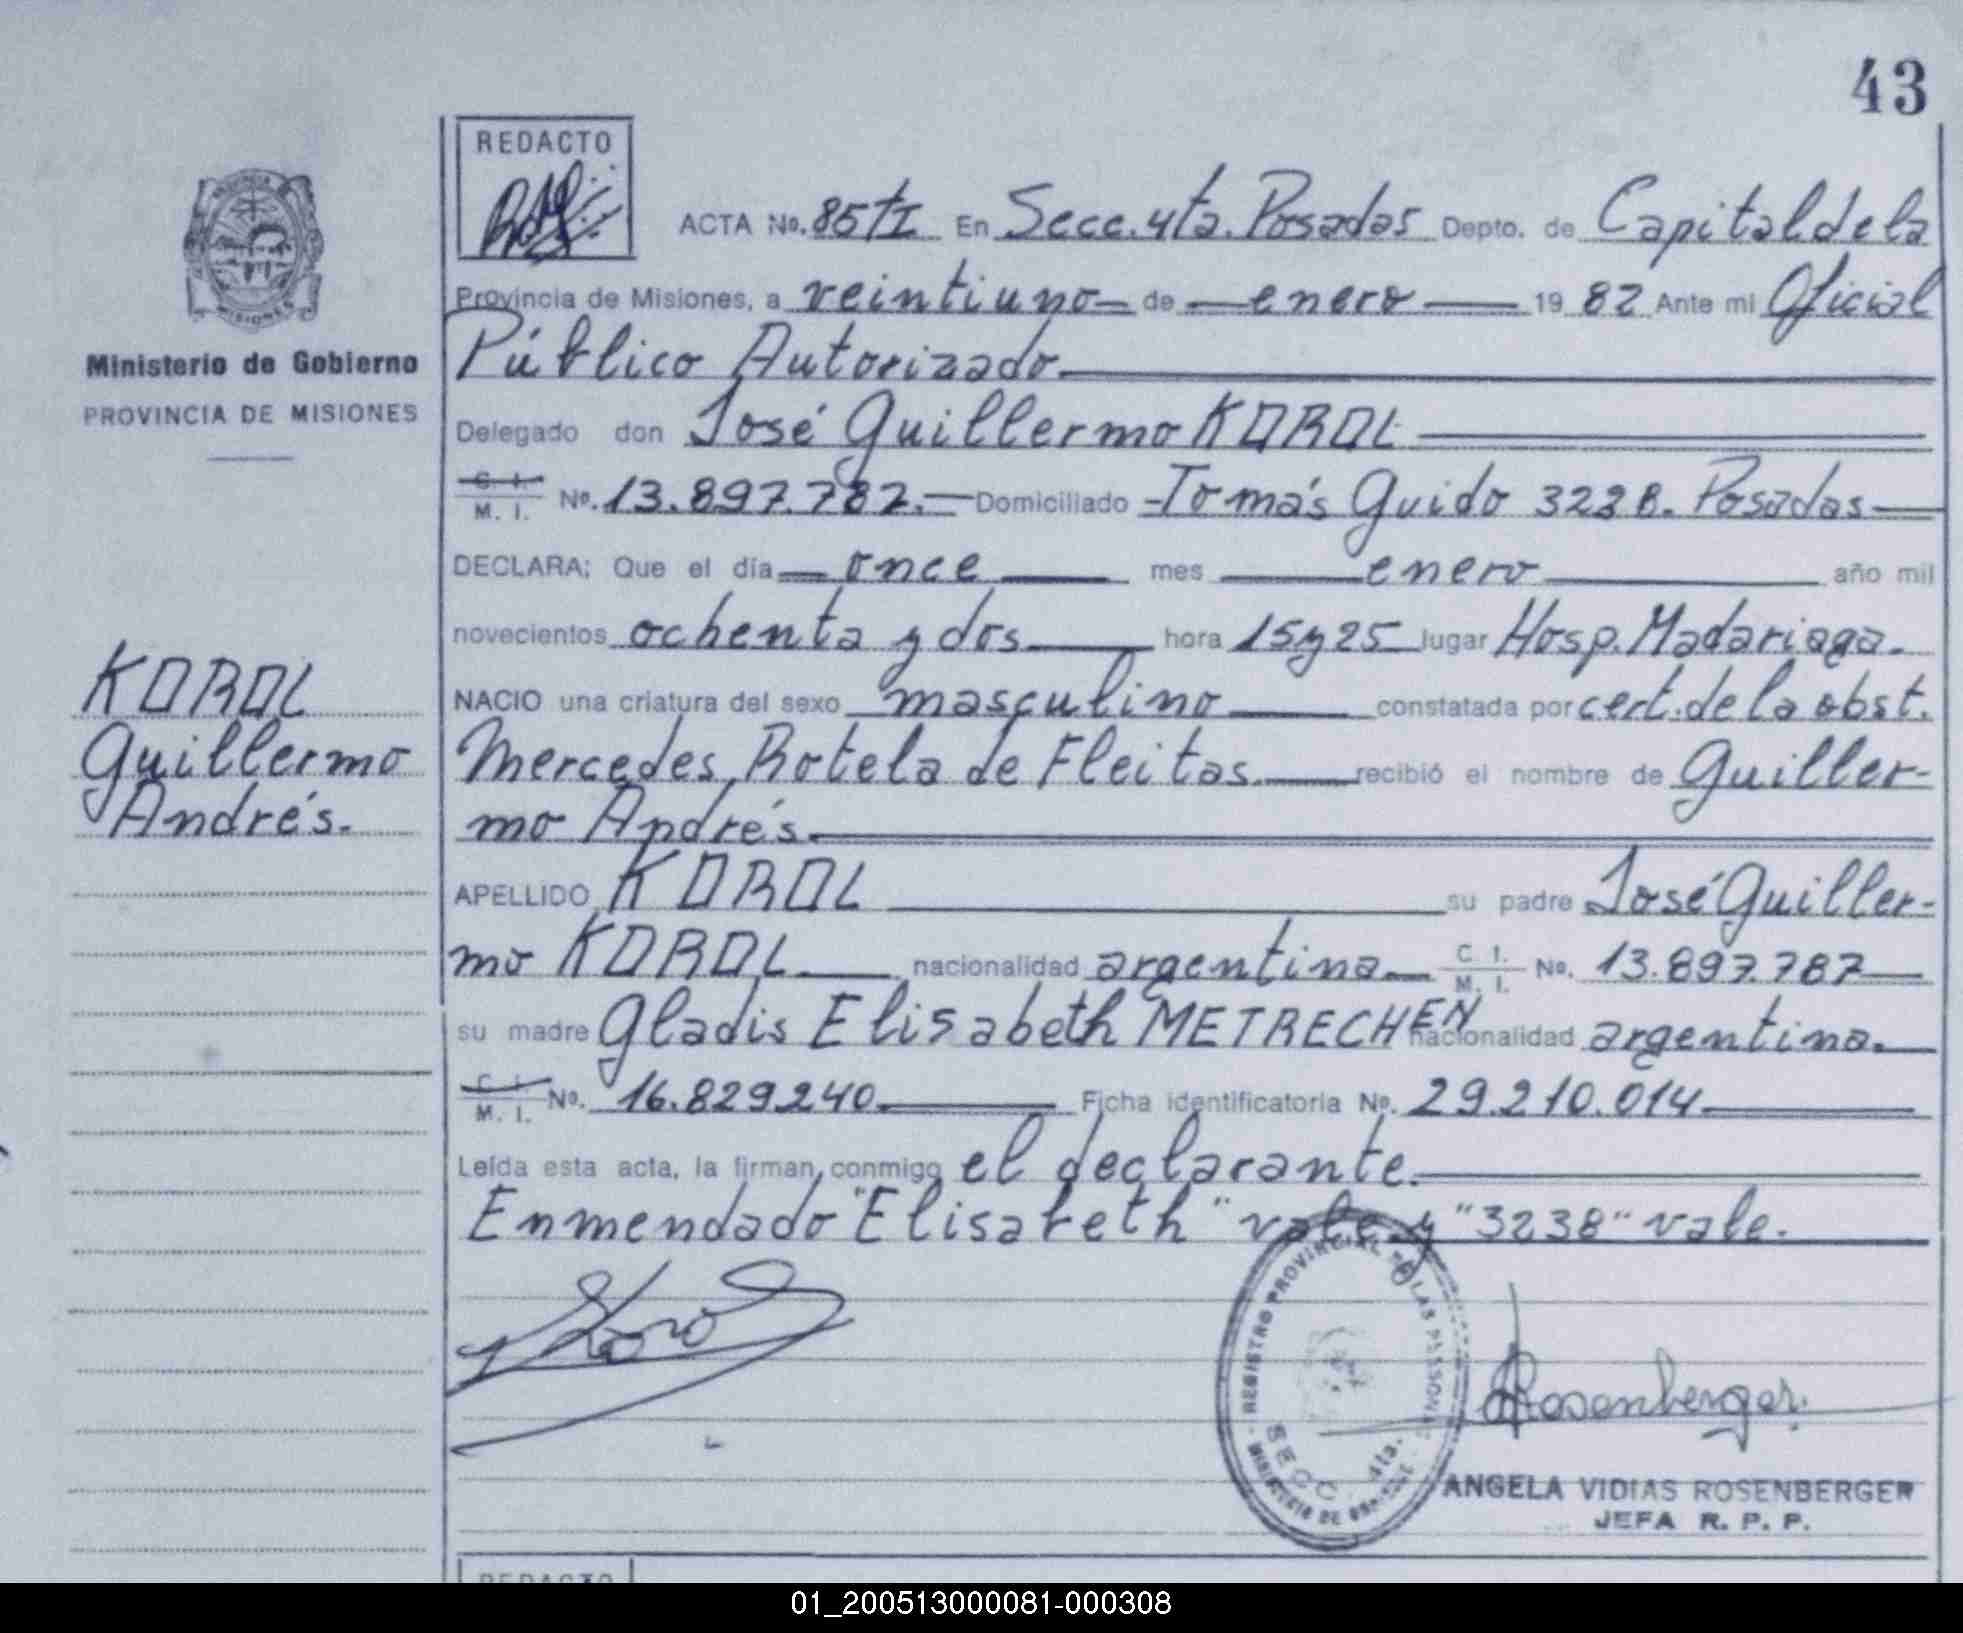 43
REDACTO
ACTA No. 85 tI En Secc. 4ta. Posadas Depto. de Capital de la
Provincia de Misiones, a veintiuno de enero 19 82 Ante mi Oficial
Público Autorizado
Ministerio de Gobierno
PROVINCIA DE MISIONES
Delegado don José Guillermo KOROL
C. I.
M. I. No. 13.897.787. Domiciliado Tomás Guido 3238. Posadas
DECLARA: Que el día once mes enero año mil
novecientos ochenta y dos hora 15 y 25 lugar Hosp. Madariaga.
KOROL
Guillermo
Andrés.
NACIO una criatura del sexo masculino constatada por cert. de la obst.
Mercedes Rotela de Fleitas. recibió el nombre de Guiller-
mo Andrés.
APELLIDO KOROL su padre José Guiller-
mo KOROL nacionalidad argentina C. I.
M. I. No. 13.897.787
su madre Gladis Elisabeth METRECHEN nacionalidad argentina.
C. I.
M. I. No. 16.829240 Ficha identificatoria No. 29.210.014
Leída esta acta, la firman conmigo el declarante.
Enmendado "Elisabeth" vale y "3238" vale.
REGISTRO PROVINCIAL DE LAS PERSONAS
SECC. 4ta.
MINISTERIO DE GOBIERNO
Rosenberger
ANGELA VIDIAS ROSENBERGER
JEFA R. P. P.
REDACTO
01_200513000081-000308